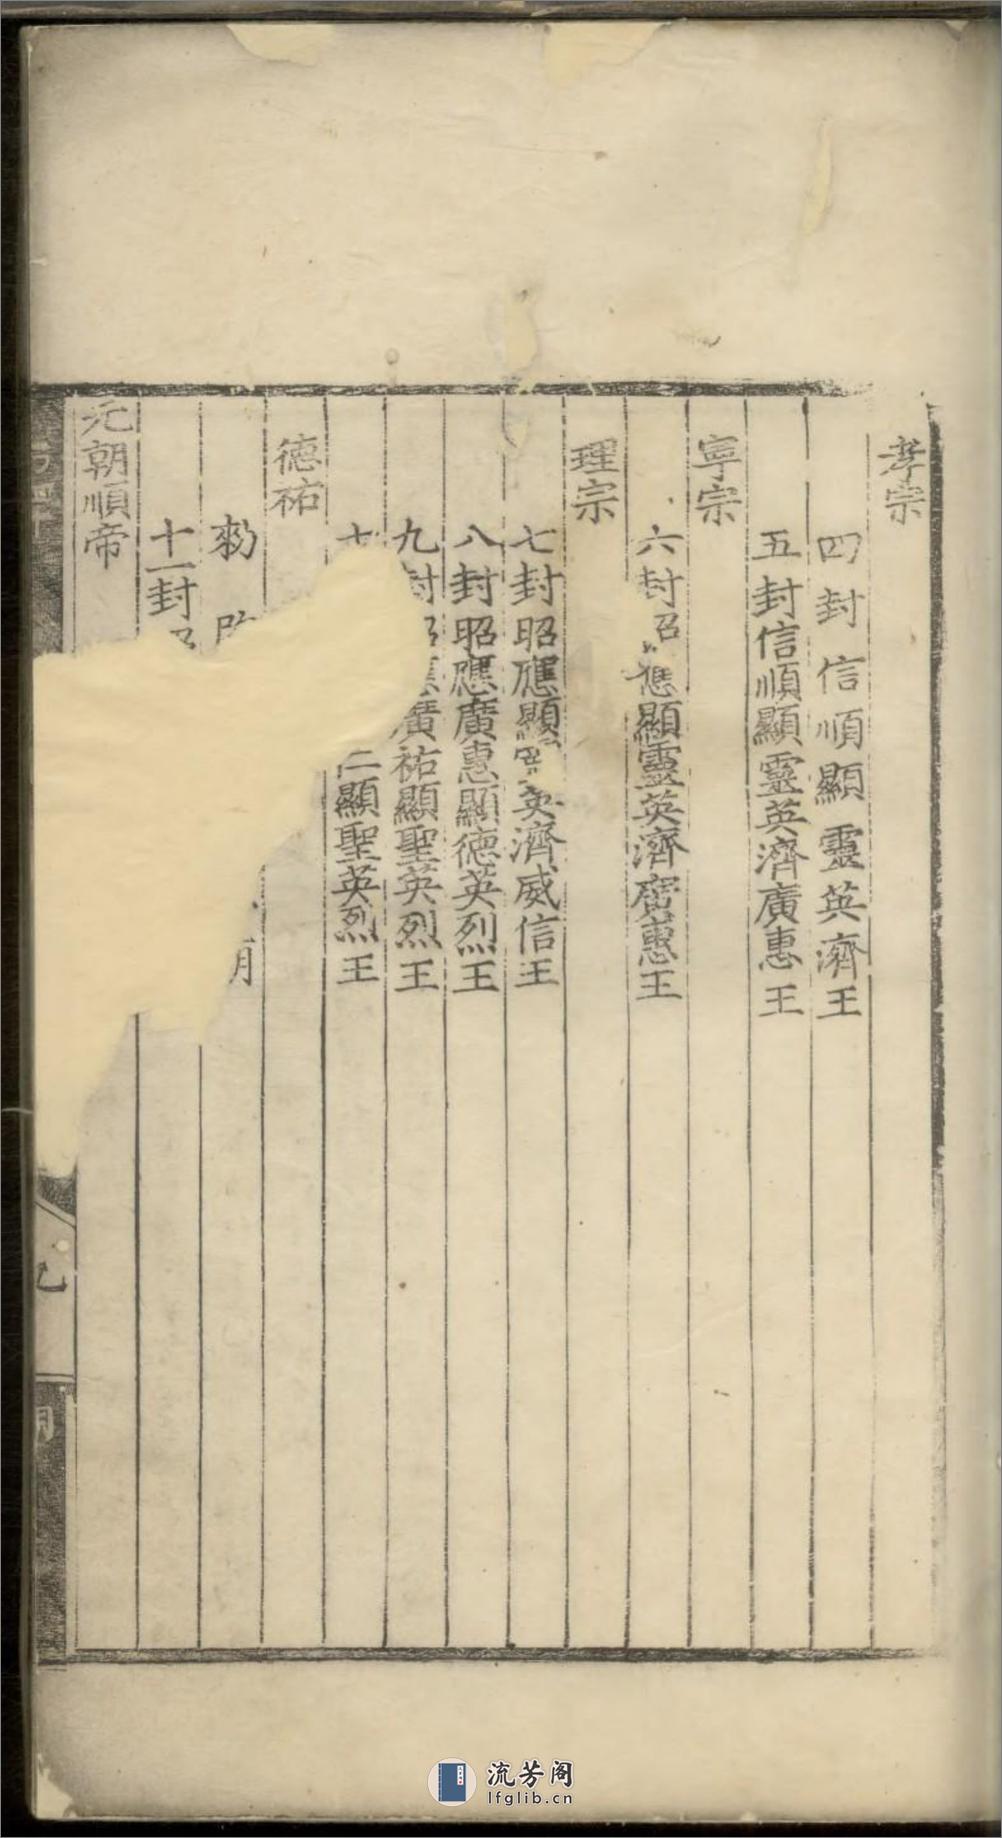 孝宗
四封信順顯靈英濟王
五封信順顯靈英濟廣惠王
寧宗
六封昭應顯靈英濟廣惠王
理宗
七封昭應顯靈英濟威信王
八封昭應廣惠顯德英烈王
九封昭應廣祐顯聖英烈王
仁顯聖英烈王
德祐
勑
十一封昭
元朝順帝
流芳阁
lfglib.cn